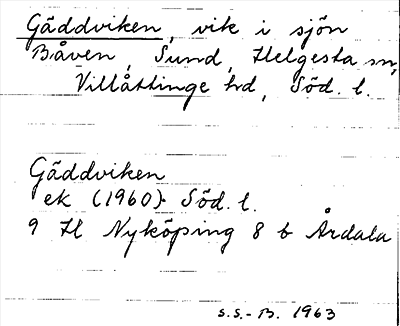 Gäddviken, vik i sjön
Båven, Sund, Helgesta sn,
Villåttinge hd, Söd. l.
Gäddviken
ek (1960) Söd. l.
9 H Nyköping 8 b Årdala
S.S.-B. 1963